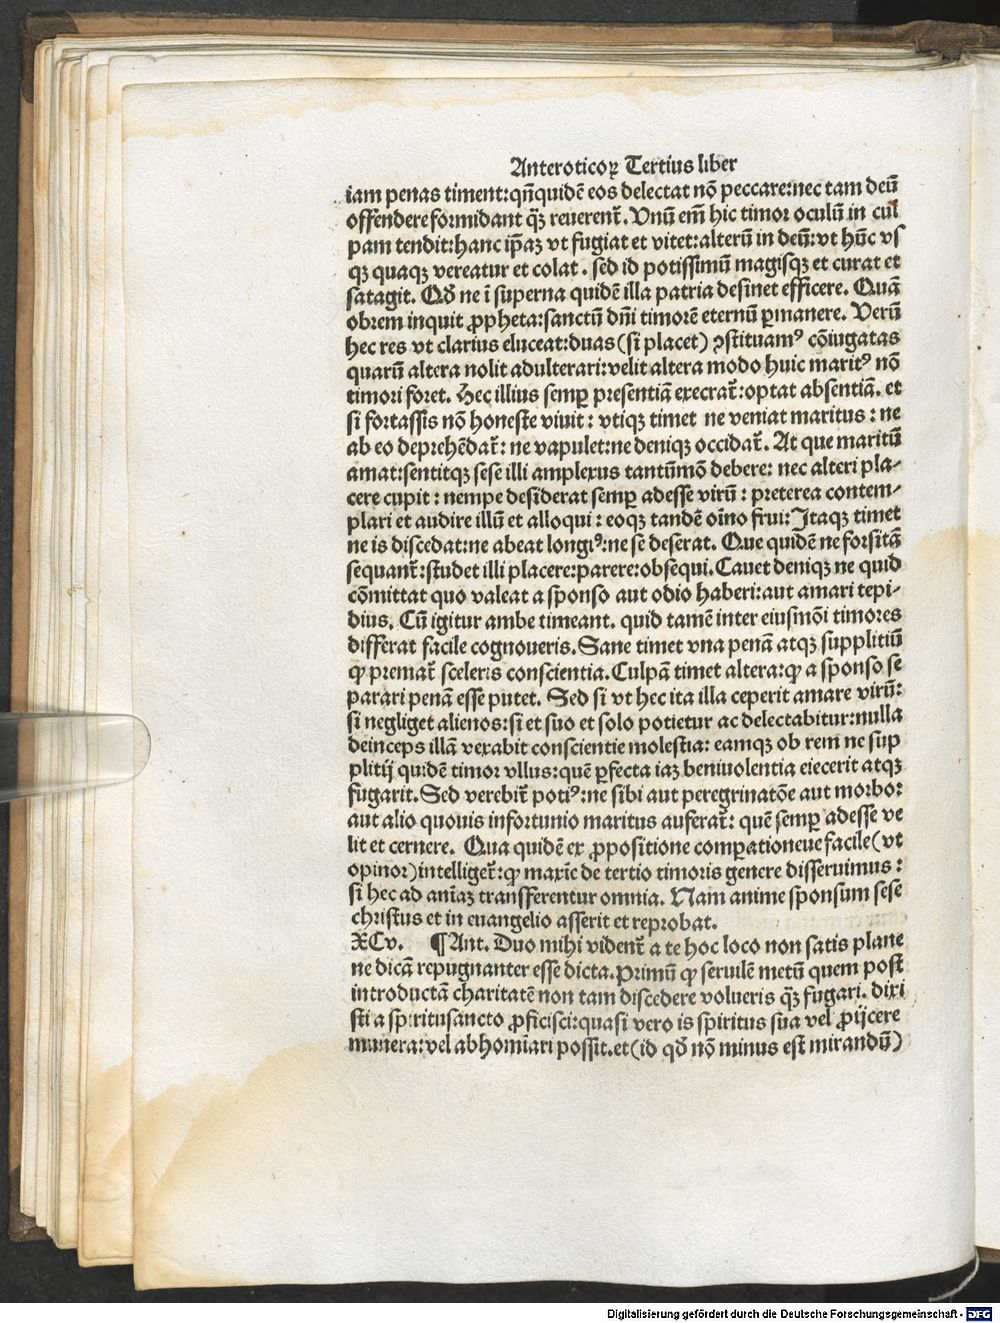 Anteroticoꝝ Tertius liber
iam penas timent:qñquidē eos delectat nō peccare:nec tam deū
offendere formidant q̈ꝫ reuerent̄. Vnū em̄ hic timor oculū in cul
pam tendit:hanc ip̄aꝫ vt fugiat et vitet:alterū in deū:vt hūc vſ
qꝫ quaqꝫ vereatur et colat. sed id potissimū magisqꝫ et curat et
satagit. Qđ ne ī superna quidē illa patria desinet efficere. Quā
obrem inquit ꝓpheta:sanctū dn̄i timorē eternū ꝑmanere. Verū
hec res vt clarius eluceat:duas(si placet) ꝯstituamꝰ cōiugatas
quarū altera nolit adulterari:velit altera modo huic maritꝰ nō
timori foret. Hec illius semꝑ presentiā execrat̄:optat absentiā. et
si fortassis nō honeste viuit: vtiqꝫ timet ne veniat maritus: ne
ab eo deprehēdat̄: ne vapulet:ne deniqꝫ occidat̄. At que maritū
amat:sentitqꝫ sese illi amplexus tantūmō debere: nec alteri pla-
cere cupit: nempe desiderat semꝑ adesse virū: preterea contem-
plari et audire illū et alloqui: eoqꝫ tandē oīno frui: Itaqꝫ timet
ne is discedat:ne abeat longiꝰ:ne se deserat. Que quidē ne forsitā
sequant̄:studet illi placere:parere:obsequi. Cauet deniqꝫ ne quid
cōmittat quo valeat a sponso aut odio haberi:aut amari tepi-
dius. Cū igitur ambe timeant. quid tamē inter eiusmōi timores
differat facile cognoueris. Sane timet vna penā atqꝫ supplitiū
ꝙ premat̄ sceleris conscientia. Culpā timet altera:ꝙ a sponso se
parari penā esse putet. Sed si vt hec ita illa ceperit amare virū:
si negliget alienos:si et suo et solo potietur ac delectabitur:nulla
deinceps illā vexabit conscientie molestia: eamqꝫ ob rem ne sup
plitij quidē timor vllus:quē ꝑfecta iaꝫ beniuolentia eiecerit atqꝫ
fugarit. Sed verebit̄ potiꝰ:ne sibi aut peregrinatōe aut morbo:
aut alio quouis infortunio maritus auferat̄: quē semꝑ adesse ve
lit et cernere. Qua quidē ex ꝓpositione comꝑationeue facile(vt
opinor)intelliget̄:ꝙ maxīe de tertio timoris genere disseruimus:
si hec ad anīaꝫ transferentur omnia. Nam anime sponsum sese
christus et in euangelio asserit et reprobat.
XCv. ¶ Ant. Duo mihi vident̄ a te hoc loco non satis plane
ne dicā repugnanter esse dicta. Primū ꝙ seruilē metū quem post
introductā charitatē non tam discedere volueris q̈ꝫ fugari. dixi
sti a spiritusancto ꝓficisci:quasi vero is spiritus sua vel ꝓijcere
munera:vel abhomīari possit. et(id qđ nō minus est mirandū)
Digitalisierung gefördert durch die Deutsche Forschungsgemeinschaft - DFG